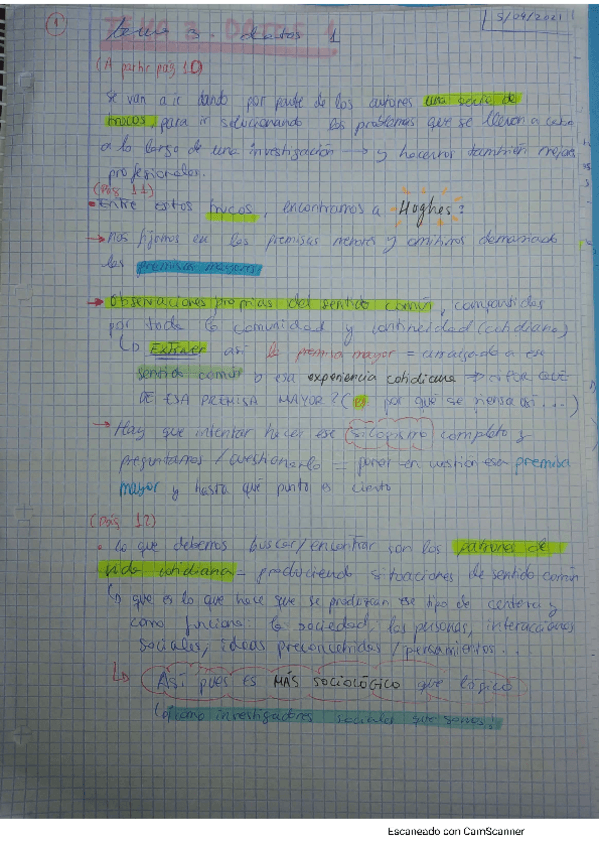 1
5/04/2021
Tema 3. datos 1
(A partir pág 10)
Se van a ir dando por parte de los autores una serie de
trucos, para ir solucionando los problemas que se llevan a cabo
a lo largo de una investigación → y hacernos también mejores
profesionales.
(Pág 11)
• Entre estos trucos, encontramos a Hughes:
→ nos fijamos en las premisas menores y omitimos demasiado
las premisas mayores
→ Observaciones propias del sentido común, compartidas
por toda la comunidad y continuidad (cotidiano)
↳ Extraer así la premisa mayor = arraigado a ese
sentido común o esa experiencia cotidiana →
DE ESA PREMISA MAYOR? (es por qué se piensa así...)
→ Hay que intentar hacer ese silogismo completo y
preguntarnos / cuestionarlo = poner en cuestión esa premisa
mayor y hasta qué punto es cierto
(Pág 12)
• Lo que debemos buscar/encontrar son los patrones de
vida cotidiana = produciendo situaciones de sentido común
↳ que es lo que hace que se produzcan ese tipo de y
como funciona: la sociedad, las personas, interacciones
sociales, ideas preconcebidas / pensamientos...
↳ Así pues es MÁS SOCIOLÓGICO que lógico
(como investigadores sociales que somos)
Escaneado con CamScanner